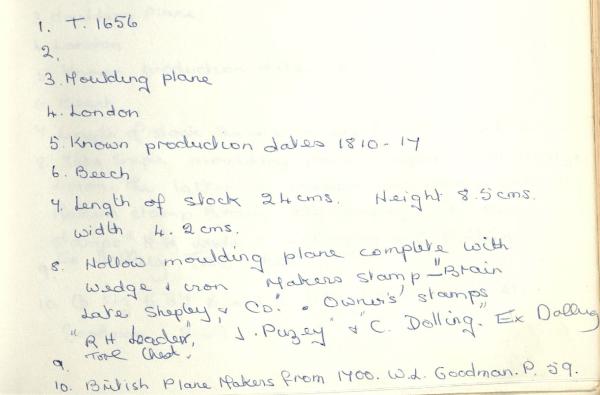 1. T. 1656
2.
3. Moulding plane
4. London
5. Known production dates 1810-17
6. Beech
7. Length of stock 24cms. Height 8.5cms.
width 4.2cms.
8. Hollow moulding plane complete with
wedge & iron Makers stamp - "Brain
Late Shepley & Co". Owner's stamps
"R H Loader", "J. Puzey" & "C. Dolling." Ex Dolling
Tool Chest.
9.
10. British Plane Makers from 1700. W.L. Goodman. P. 59.